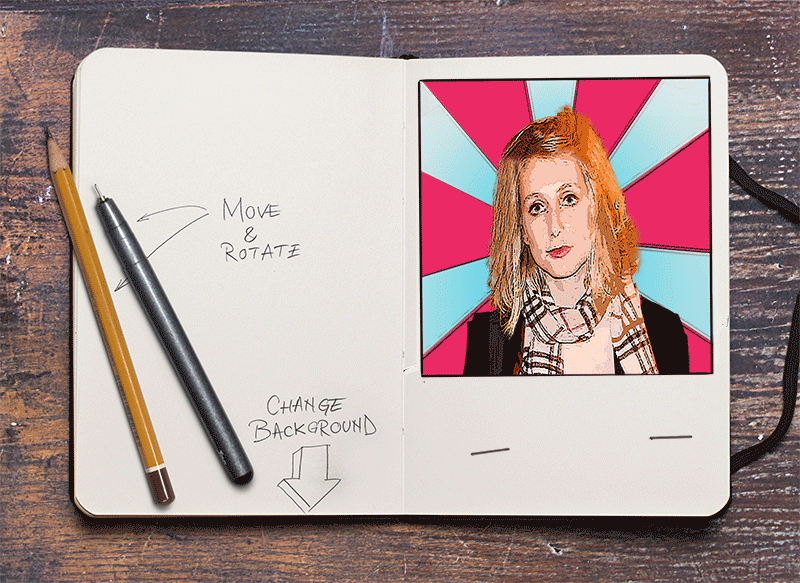 MOVE
&
ROTATE
CHANGE
BACKGROUND